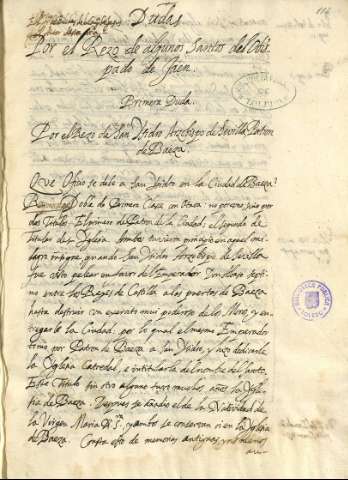 Dudas
Por el Rezo de algunos Santos del Obis
pado de Jaen.
Primera Duda.
Por el Rezo de San Isidro Arzobispo de Sevilla Patron
de Baeza.
Que Oficio se debe a San Isidro en la Ciudad de Baeza?
Doble de Primera Clase con Otava: no por uno, sino por
dos Titulos. El primero de Patron de la Ciudad; el segundo de
titular de su Iglesia. Ambos tuvieron principio en aquel mi-
lagro insigne, quando San Isidro Arzobispo de Sevilla
fue visto pelear en favor del Emperador Don Alonso Septi
mo entre los Reyes de Castilla a las puertas de Baeza
hasta destruir un exercito muy poderoso de los Moros, y en
tregarle la Ciudad. por lo qual el mismo Emperador
tomo por Patron de Baeza a San Isidro, y hizo dedicarle
la Iglesia Catedral, e intitularla del nombre del Santo.
Este Titulo sin otro alguno tuvo muchos años la Igle
sia de Baeza. Despues se añadio el de la Natividad de
la Virgen Maria N. S.ra y ambos se conservan en la Iglesia
de Baeza. Consta esto de memorias antiguas, y